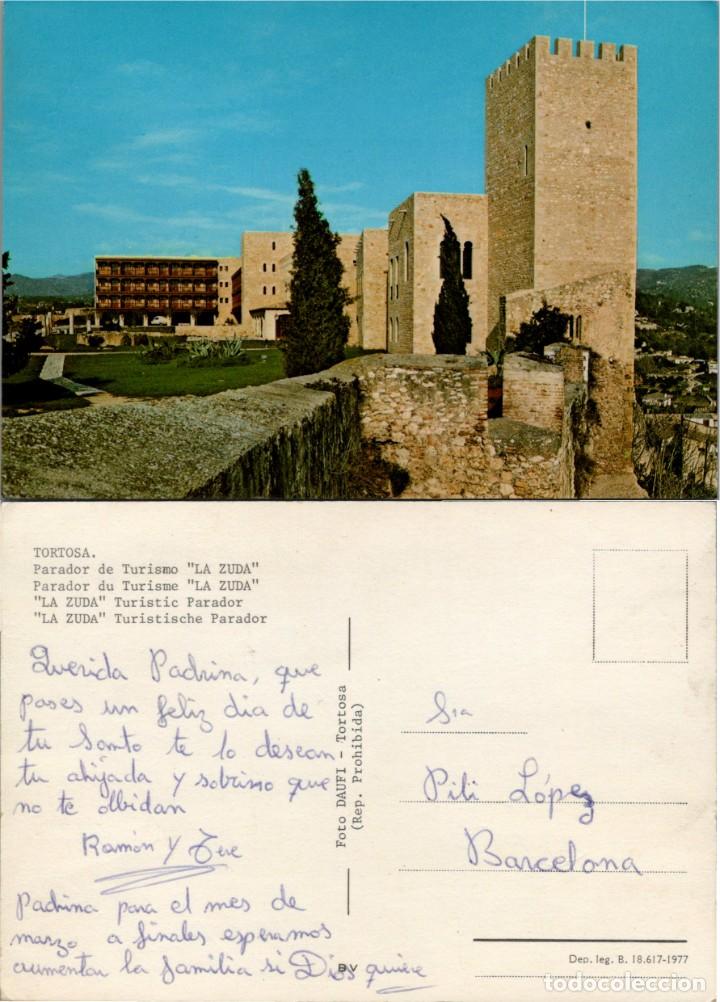 TORTOSA.
Parador de Turismo "LA ZUDA"
Parador du Turisme "LA ZUDA"
"LA ZUDA" Turistic Parador
"LA ZUDA" Turistische Parador
Querida Padrina, que
pases un feliz dia de
tu Santo te lo desean
tu ahijada y sobrino que
no te olbidan
Ramón y Tere
Padrina para el mes de
marzo a finales esperamos
aumentar la familia si Dios quiere
Foto DAUFI - Tortosa
(Rep. Prohibida)
BV
Sra
Pili López
Barcelona
Dep. leg. B. 18.617-1977
todocoleccion